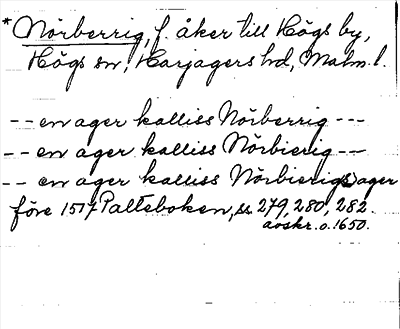 * Nörberrig, f. åker till Högs by,
Högs sn, Harjagers hd, Malm. l.
-- en ager kalliss Nörberrig ---
-- en ager kalliss Nörbierig --
-- en ager kalliss Nörbierigs ager
före 1517 Palteboken, ss. 279, 280, 282.
avskr. o. 1650.